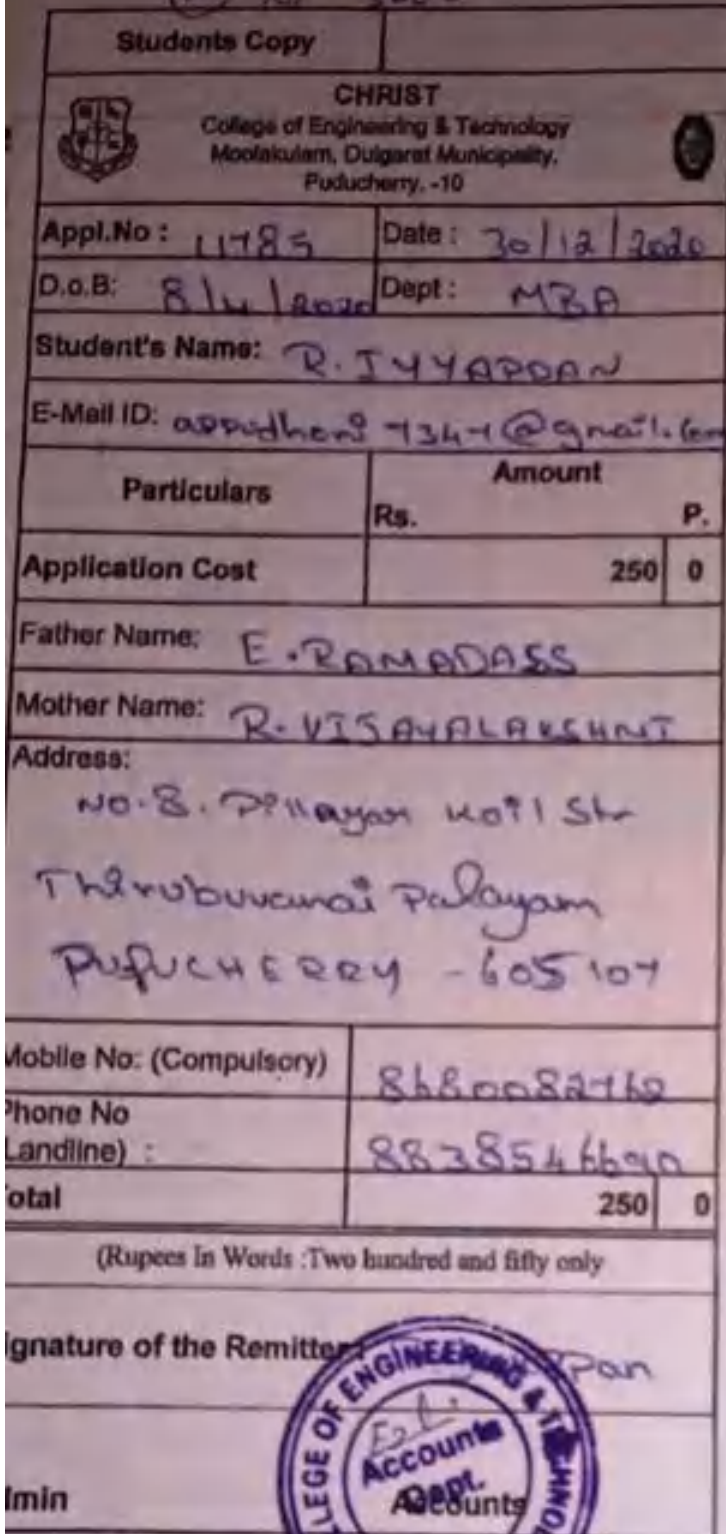 Students Copy
CHRIST
College of Engineering & Technology
Moolakulam, Oulgaret Municipality,
Puducherry. -10
Appl.No : 11785 Date : 30/12/2020
D.o.B: 8/4/2020 Dept : MBA
Student's Name: R. IYYAPPAN
E-Mail ID: @gmail.com
Particulars Amount
Rs. P.
Application Cost 250 0
Father Name: E. RAMADASS
Mother Name: R. VIJAYALAKSHMI
Address:
No. 8. Pillayar Koil Str
Thirubuvanai Palayam
PUDUCHERRY - 605 107
Mobile No: (Compulsory) 8680082762
Phone No
Landline) : 8838546690
otal 250 0
(Rupees In Words :Two hundred and fifty only
ignature of the Remitter pan
LLEGE OF ENGINEERING & TECHNO
Accounts
Dept.
dmin Accounts